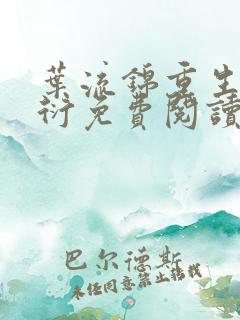 葉流錦重生
衍免費閱讀
巴尔德斯
未经同意禁止转载